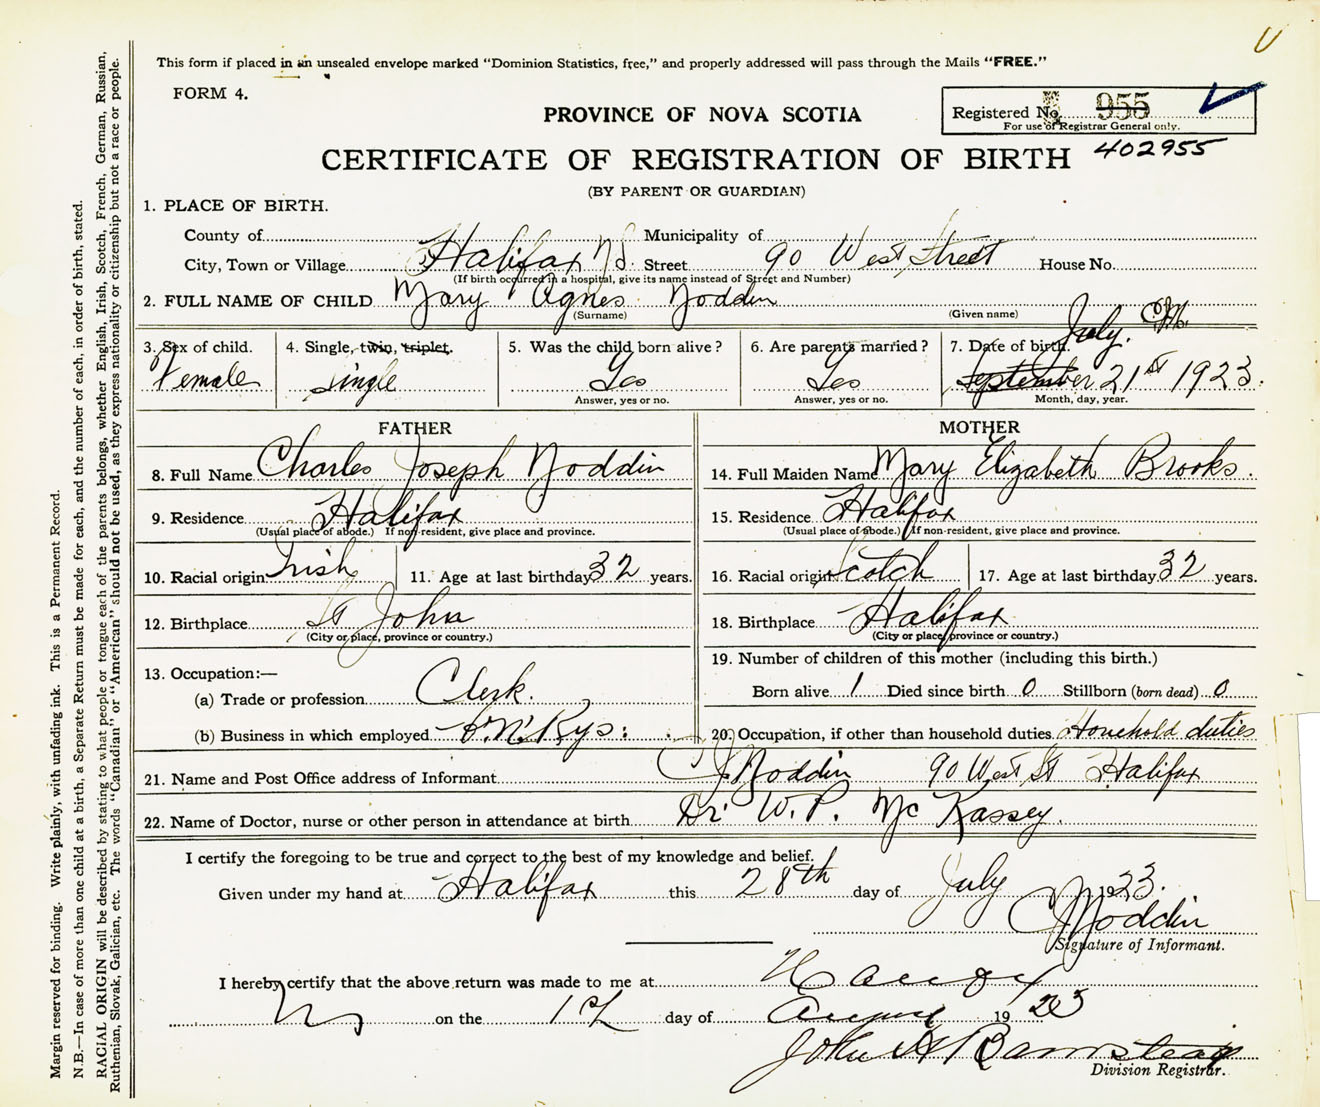 This form if placed in an unsealed envelope marked "Dominion Statistics, free," and properly addressed will pass through the Mails "FREE."
FORM 4.
PROVINCE OF NOVA SCOTIA
Registered No. 955
For use of Registrar General only.
402955
CERTIFICATE OF REGISTRATION OF BIRTH
(BY PARENT OR GUARDIAN)
1. PLACE OF BIRTH.
County of Municipality of
City, Town or Village Halifax N.S. Street 90 West Street House No.
(If birth occurred in a hospital, give its name instead of Street and Number)
2. FULL NAME OF CHILD Mary Agnes Noddin
(Surname) (Given name)
July.
3. Sex of child. 4. Single, twin, triplet. 5. Was the child born alive? 6. Are parents married? 7. Date of birth.
Female Single Yes Yes September 21st 1923.
Answer, yes or no. Answer, yes or no. Month, day, year.
FATHER MOTHER
8. Full Name Charles Joseph Noddin 14. Full Maiden Name Mary Elizabeth Brooks.
9. Residence Halifax 15. Residence Halifax
(Usual place of abode.) If non-resident, give place and province. (Usual place of abode.) If non-resident, give place and province.
10. Racial origin Irish 11. Age at last birthday 32 years. 16. Racial origin Scotch 17. Age at last birthday 32 years.
12. Birthplace St John 18. Birthplace Halifax
(City or place, province or country.) (City or place, province or country.)
13. Occupation:— 19. Number of children of this mother (including this birth.)
(a) Trade or profession Clerk. Born alive 1 Died since birth 0 Stillborn (born dead) 0
(b) Business in which employed C.N. Rys: 20. Occupation, if other than household duties Household duties
21. Name and Post Office address of Informant C J Noddin 90 West St Halifax
22. Name of Doctor, nurse or other person in attendance at birth Dr. W. P. McKassey.
I certify the foregoing to be true and correct to the best of my knowledge and belief.
Given under my hand at Halifax this 28th day of July 1923.
C J Noddin
Signature of Informant.
I hereby certify that the above return was made to me at
on the 1st day of August 1923
John H Barnstead
Division Registrar.
Margin reserved for binding. Write plainly, with unfading ink. This is a Permanent Record.
N.B.—In case of more than one child at a birth, a Separate Return must be made for each, and the number of each, in order of birth, stated.
RACIAL ORIGIN will be described by stating to what people or tongue each of the parents belongs, whether English, Irish, Scotch, French, German, Russian,
Ruthenian, Slovak, Galician, etc. The words "Canadian" or "American" should not be used, as they express nationality or citizenship but not a race or people.